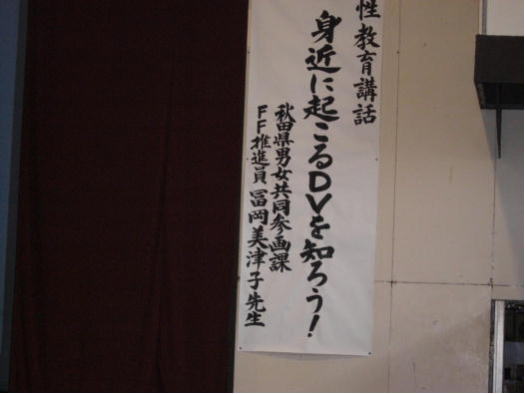 性教育講話
身近に起こるDVを知ろう!
秋田県男女共同参画課
FF推進員 冨岡美津子先生